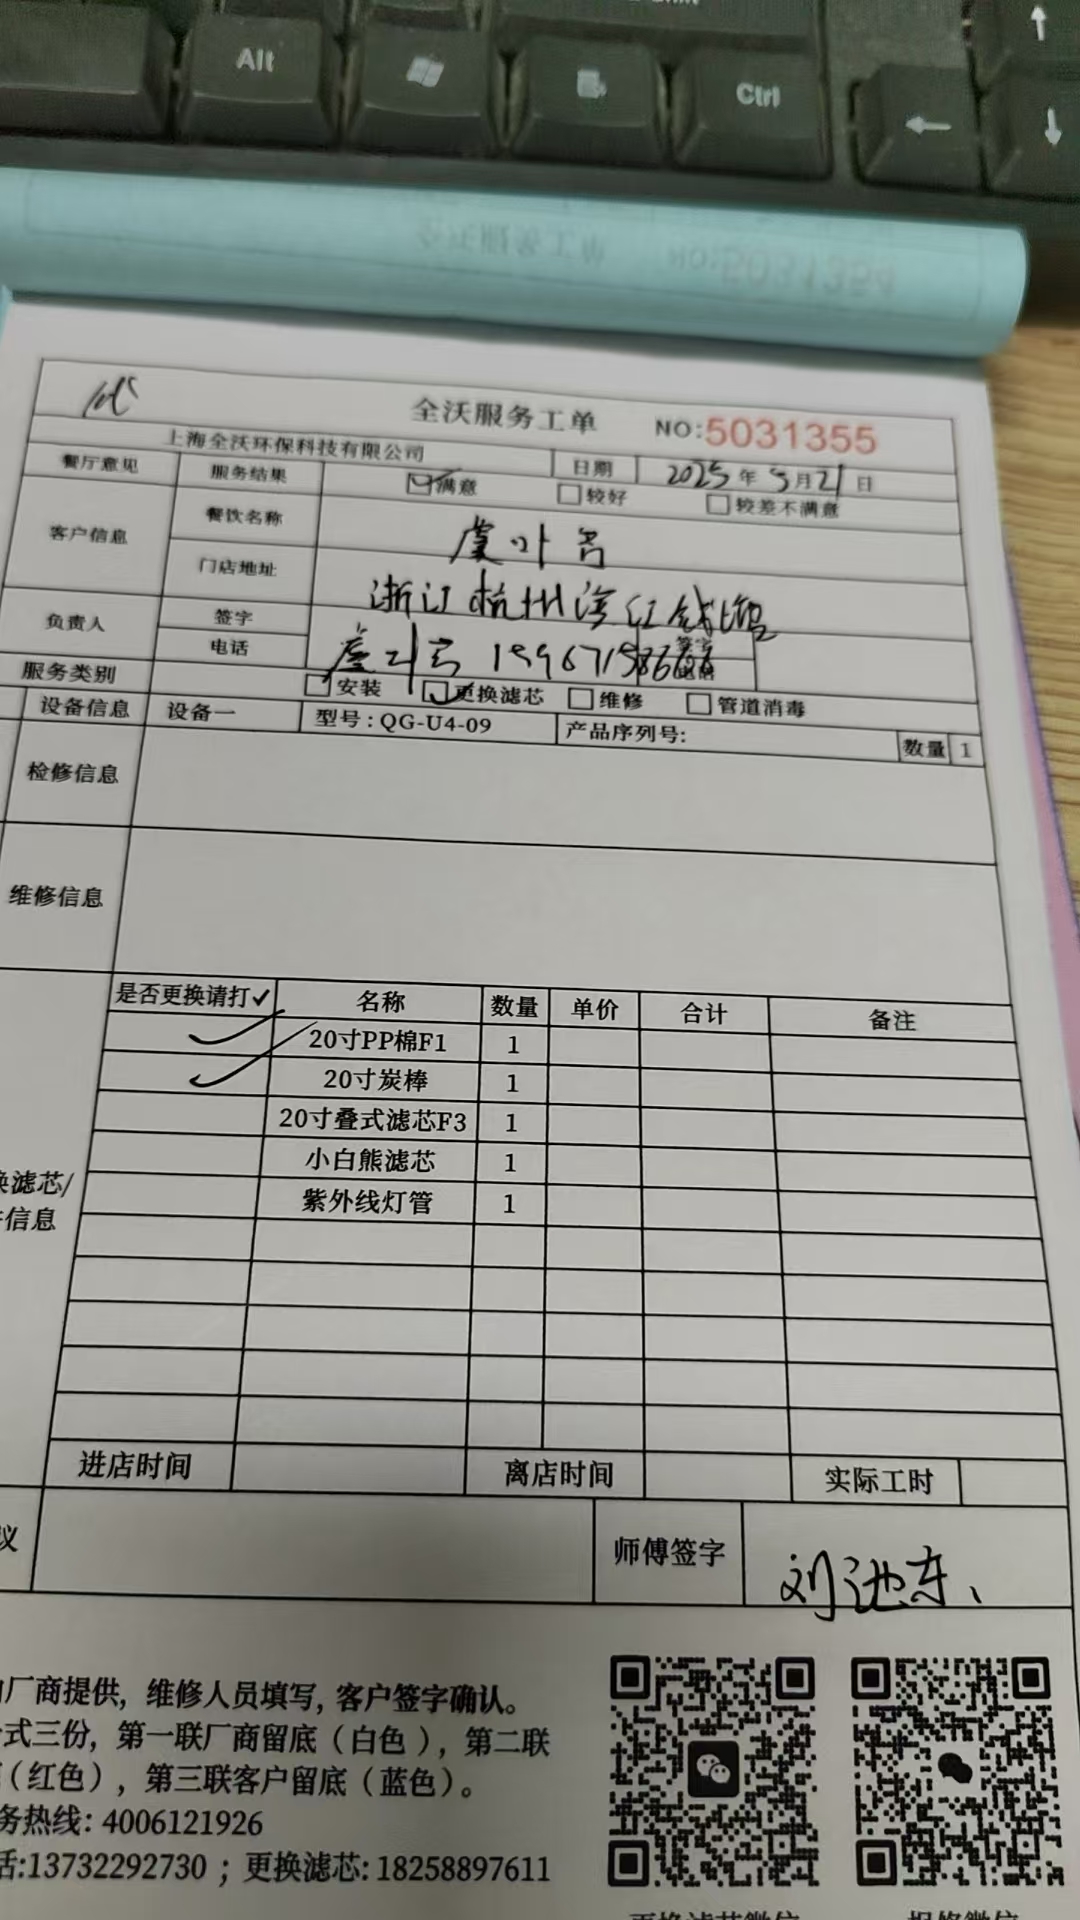 Alt
Ctrl
全沃服务工单 NO:5031355
上海全沃环保科技有限公司 日期 2025年5月21日
餐厅意见 服务结果 满意 较好 较差不满意
客户信息 餐饮名称
门店地址 浙江杭州滨江
负责人 签字
电话
服务类别 安装 更换滤芯 维修 管道消毒
设备信息 设备一 型号:QG-U4-09 产品序列号: 数量 1
检修信息
维修信息
是否更换请打✓ 名称 数量 单价 合计 备注
20寸PP棉F1 1
20寸炭棒 1
20寸叠式滤芯F3 1
小白熊滤芯 1
紫外线灯管 1
滤芯/
信息
进店时间 离店时间 实际工时
议 师傅签字 刘池东
厂商提供, 维修人员填写, 客户签字确认。
式三份, 第一联厂商留底(白色), 第二联
(红色), 第三联客户留底(蓝色)。
务热线: 4006121926
话:13732292730 ; 更换滤芯: 18258897611